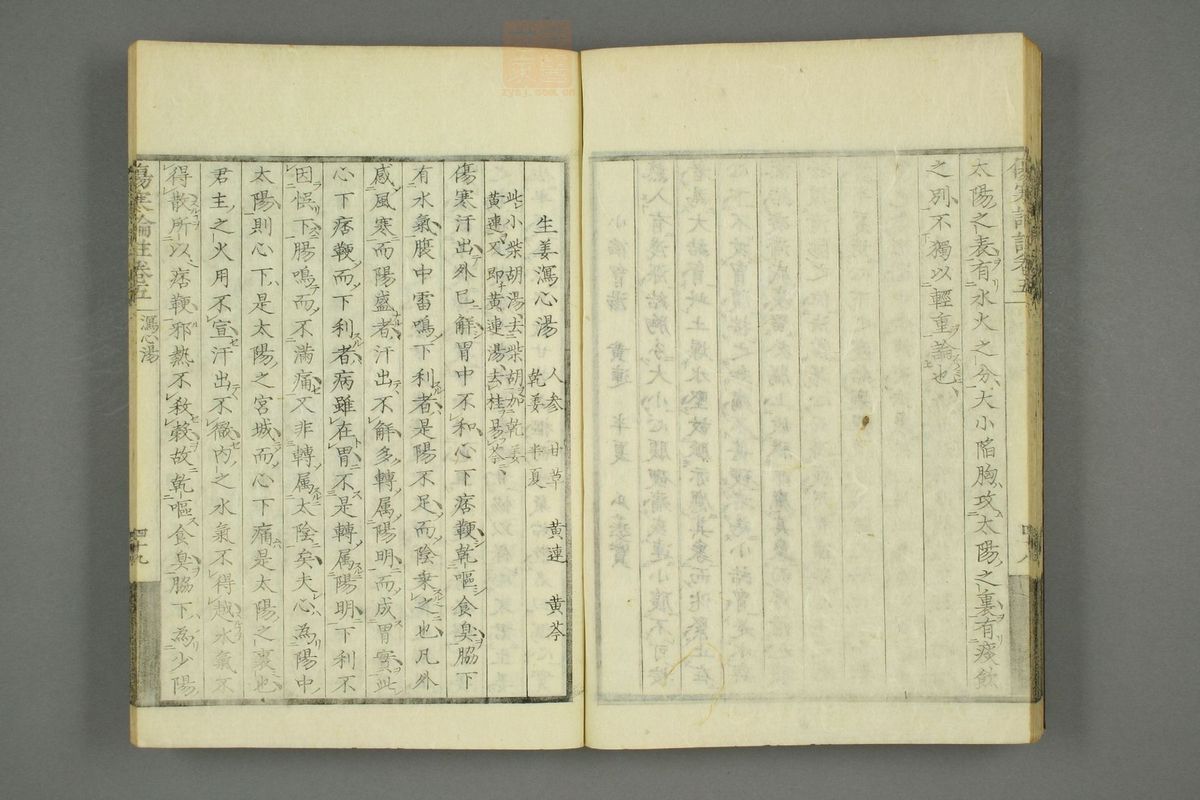 太陽之表有水火之分大小陷胸攻太陽之裏有痰飲
之別不獨以輕重論也
生姜瀉心湯
人参 甘草 黄連 黄芩
乾姜 半夏
此小柴胡湯去柴胡加乾姜
黄連又即黄連湯去桂易芩
傷寒汗出外已解胃中不和心下痞鞕乾嘔食臭脇下
有水氣腹中雷鳴下利者是陽不足而陰乗之也凡外
感風寒而陽盛者汗出不解多轉属陽明而成胃實此
心下痞鞕而下利者病雖在胃不是轉属陽明下利不
因悞下腸鳴而不満痛又非轉属太陰矣夫心為陽中
太陽則心下是太陽之宮城而心下痛是太陽之裏也
君主之火用不宣汗出不徹内之水氣不得越水氣不
得散所以痞鞕邪熱不殺穀故乾嘔食臭脇下為少陽
傷寒論註卷五
瀉心湯
四十九
四十八